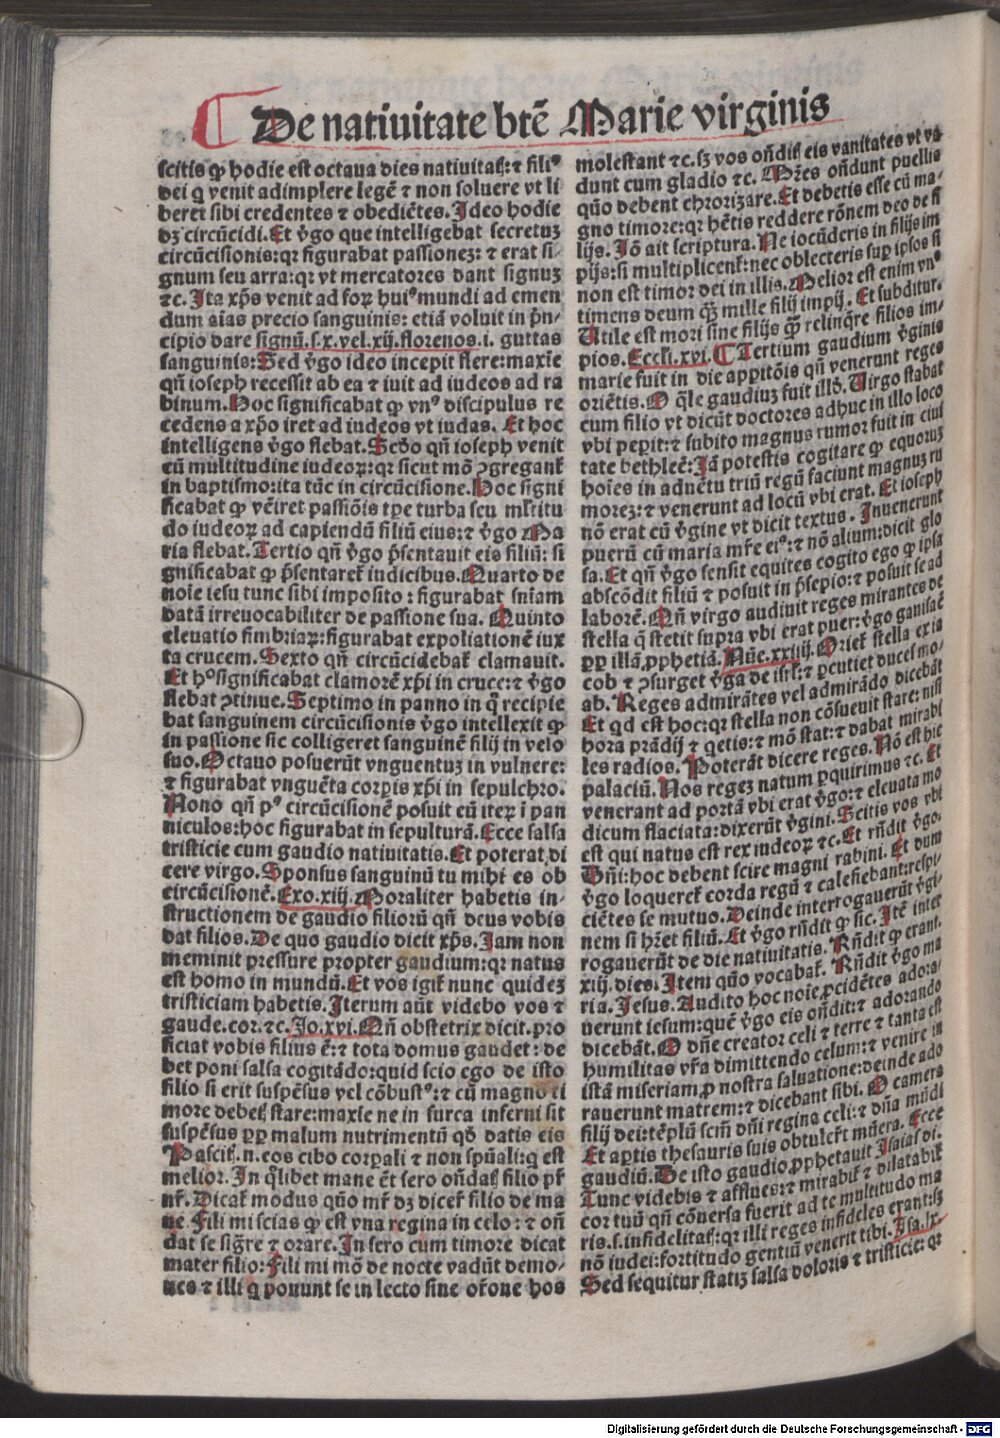 De natiuitate btē Marie virginis
scitis ꝙ hodie est octaua dies natiuitatꝭ: ⁊ filiꝰ
dei q̇ venit adimplere legē ⁊ non soluere vt li
beret sibi credentes ⁊ obediētes. Ideo hodie
dꝫ circūcidi. Et v̄go que intelligebat secretuꝫ
circūcisionis: qꝛ figurabat passioneꝫ: ⁊ erat si-
gnum seu arra: qꝛ vt mercatores dant signuꝫ
⁊c. Ita xp̄s venit ad foꝝ huiꝰ mundi ad emen
dum aīas precio sanguinis: etiā voluit in p̄n-
cipio dare signū.s.x.vel.xij.florenos.i. guttas
sanguinis: Sed v̄go ideo incepit flere: maxīe
qn̄ ioseph recessit ab ea ⁊ iuit ad iudeos ad ra
binum. Hoc significabat ꝙ vnꝰ discipulus re
cedens a xp̄o iret ad iudeos vt iudas. Et hoc
intelligens v̄go flebat. Scdo qn̄ ioseph venit
cū multitudine iudeoꝝ: qꝛ sicut mō ꝯgregant᷑
in baptismo: ita tūc in circūcisione. Hoc signi
ficabat ꝙ vēiret passiōis tꝑe turba seu ml̄titu
do iudeoꝝ ad capiendū filiū eius: ⁊ v̄go Ma
ria flebat. Tertio qn̄ v̄go p̄sentauit eis filiū: si
gnificabat ꝙ p̄sentaret᷑ iudicibus. Quarto de
noīe iesu tunc sibi imposito: figurabat sniam
datā irreuocabiliter de passione sua. Quinto
eleuatio fimbriaꝝ: figurabat expoliationē iux
ta crucem. Sexto qn̄ circūcidebat᷑ clamauit.
Et hͦ significabat clamorē xp̄i in cruce: ⁊ v̄go
flebat ꝯtinue. Septimo in panno in q̊ recipie
bat sanguinem circūcisionis v̄go intellexit ꝙ
in passione sic colligeret sanguinē filij in velo
suo. Octauo posuerūt vnguentuꝫ in vulnere:
⁊ figurabat vnguēta corꝑis xp̄i in sepulchro.
Nono qn̄ pꝰ circūcisionē posuit eū iteꝝ ī pan
niculos: hoc figurabat in sepulturā. Ecce salsa
tristicie cum gaudio natiuitatis. Et poterat di
cere virgo. Sponsus sanguinū tu mihi es ob
circūcisionē. Exo.xiij. Moraliter habetis in-
structionem de gaudio filiorū qn̄ deus vobis
dat filios. De quo gaudio dicit xp̄s. Iam non
meminit pressure propter gaudium: qꝛ natus
est homo in mundū. Et vos igit᷑ nunc quideꝫ
tristiciam habetis. Iterum aūt videbo vos ⁊
gaude. cor. ⁊c. Jo.xvi. Qn̄ obstetrix dicit. pro
ficiat vobis filius ē: ⁊ tota domus gaudet: de
bet poni salsa cogitādo: quid scio ego de isto
filio si erit suspēsus vel cōbustꝰ: ⁊ cū magno ti
more debetꝭ stare: maxīe ne in furca inferni sit
suspēsus ꝓp malum nutrimentū qd̄ datis eis
Pascitꝭ.n. eos cibo corꝑali ⁊ non spūali: q̇ est
melior. In q̊libet mane ēt sero on̄datꝭ filio pr̄
nr̄. Dicat᷑ modus quo mr̄ dꝫ dicer̄ filio de ma
ne. Fili mi scias ꝙ est vna regina in celo: ⁊ on̄
dat se sig̅re ⁊ orare. In sero cum timore dicat
mater filio: Fili mi mō de nocte vadūt demo-
nes ⁊ illi q̇ ponunt se in lecto sine or̄one hos
molestant ⁊c. sꝫ vos on̄ditꝭ eis vanitates vt va
dunt cum gladio ⁊c. Mr̄es on̄dunt puellis
quō debent chrorizare. Et debetis esse cū ma-
gno timore: qꝛ hētis reddere rōnem deo de fi
lijs. Iō ait scriptura. Ne iocūderis in filijs im
pijs: si multiplicent᷑: nec oblecteris suꝑ ipsos si
non est timor dei in illis. Melior est enim vnꝰ
timens deum q̄ꝫ mille filij impij. Et subditur.
Utile est mori sine filijs q̄ꝫ relinq̄re filios im-
pios. Eccli.xvi. Tertium gaudium v̄ginis
marie fuit in die appitōis qn̄ venerunt reges
oriētis. O q̄le gaudiuꝫ fuit illd̄. Uirgo stabat
cum filio vt dicūt doctores adhuc in illo loco
vbi peꝑit: ⁊ subito magnus rumor fuit in ciui
tate bethleē: Iā potestis cogitare ꝙ equoruꝫ
hoīes in aduētu triū regū faciunt magnuꝫ ru
morez: ⁊ venerunt ad locū vbi erat. Et ioseph
nō erat cū v̄gine vt dicit textus. Inuenerunt
puerū cū maria mr̄e eiꝰ: ⁊ nō alium: dicit glo
sa. Et qn̄ v̄go sensit equites cogito ego ꝙ ipsa
abscōdit filiū ⁊ posuit in p̄sepio: ⁊ posuit se ad
laborē. Qn̄ virgo audiuit reges mirantes de
stella q̄ stetit supra vbi erat puer: v̄go gauisa ē
ꝓp illā ꝓphetiā. Nūe.xxiiij. Oriet᷑ stella ex ia
cob ⁊ ꝯsurget v̄ga de isrl̄: ⁊ ꝑcutiet duces mo-
ab. Reges admirātes vel admirādo dicebāt
Et qd̄ est hoc: qꝛ stella non cōsueuit stare: nisi
hora prādij ⁊ q̇etis: ⁊ mō stat: ⁊ dabat mirabi
les radios. Poterāt dicere reges. Nō est hic
palaciū. Nos regez natum ꝑquirimus ⁊c. Et
venerant ad portā vbi erat v̄go: ⁊ eleuata mo
dicum flaciata: dixerūt v̄gini. Scitis vos vbi
est qui natus est rex iudeoꝝ ⁊c. Et rn̄dit v̄go.
Dn̄i: hoc debent scire magni rabini. Et dum
v̄go loqueret᷑ corda regū ⁊ calefiebant: respi-
ciētes se mutuo. Deinde interrogauerūt v̄gi-
nem si hr̄et filiū. Et v̄go rn̄dit ꝙ sic. Itē inter
rogauerūt de die natiuitatis. Rn̄dit ꝙ erant.
xiij. dies. Item quō vocabat᷑. Rn̄dit v̄go ma
ria. Jesus. Audito hoc noīe ꝓcidētes adora-
uerunt iesum: quē v̄go eis on̄dit: ⁊ adorando
dicebāt. O dn̄e creator celi ⁊ terre ⁊ tanta est
humilitas vr̄a dimittendo celum: ⁊ venire in
istā miseriam ꝓ nostra saluatione: deinde ado
rauerunt matrem: ⁊ dicebant sibi. O camera
filij dei: tēplū scm̄ dn̄i regina celi: ⁊ dn̄a mūdi
Et aꝑtis thesauris suis obtuler̄t mūera. Ecce
gaudiū. De isto gaudio ꝓphetauit Isaias di.
Tunc videbis ⁊ afflues: ⁊ mirabit᷑ ⁊ dilatabit᷑
cor tuū qn̄ cōuersa fuerit ad te multitudo ma
ris.s. infidelitatꝭ: qꝛ illi reges infideles erant: sꝫ
nō iudei: fortitudo gentiū venerit tibi. Isa.lx.
Sed sequitur statiꝫ salsa doloris ⁊ tristicie: qꝛ
Digitalisierung gefördert durch die Deutsche Forschungsgemeinschaft - DFG